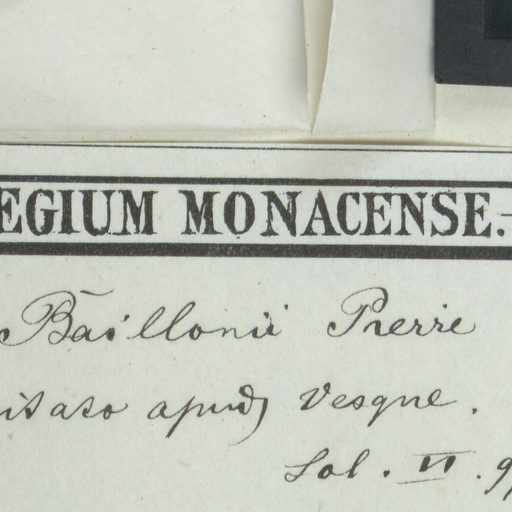 EGIUM MONACENSE.
Baillonii Pierre
itato apud Vesque.
Sol. VI. 9